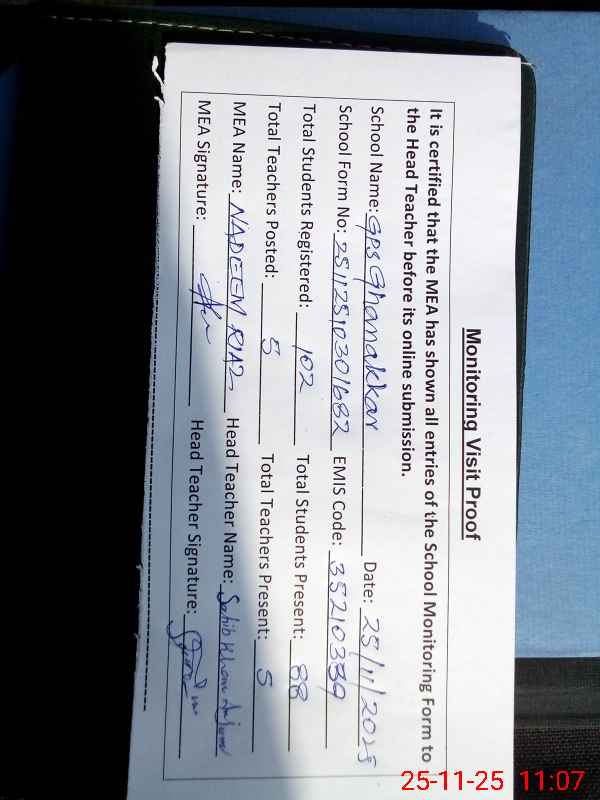 Monitoring Visit Proof
It is certified that the MEA has shown all entries of the School Monitoring Form to
the Head Teacher before its online submission.
School Name: GPS Ghanakkar Date: 25/11/2025
School Form No: 25112510301682 EMIS Code: 35210389
Total Students Registered: 102 Total Students Present: 88
Total Teachers Posted: 5 Total Teachers Present: 5
MEA Name: NADEEM RIAZ Head Teacher Name: Sahib Khan
MEA Signature: Head Teacher Signature:
25-11-25 11:07